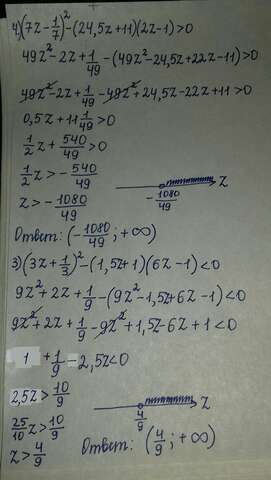 4)(7z-1/7)²-(24,5z+11)(2z-1)>0
49z²-2z+1/49-(49z²-24,5z+22z-11)>0
49z²-2z+1/49-49z²+24,5z-22z+11>0
0,5z+11 1/49>0
1/2z+540/49>0
1/2z>-540/49
z>-1080/49
-1080/49 z
Ответ: (-1080/49;+∞)
3)(3z+1/3)²-(1,5z+1)(6z-1)<0
9z²+2z+1/9-(9z²-1,5z+6z-1)<0
9z²+2z+1/9-9z²+1,5z-6z+1<0
1+1/9-2,5z<0
2,5z>10/9
25/10z>10/9
z>4/9
4/9 z
Ответ: (4/9;+∞)